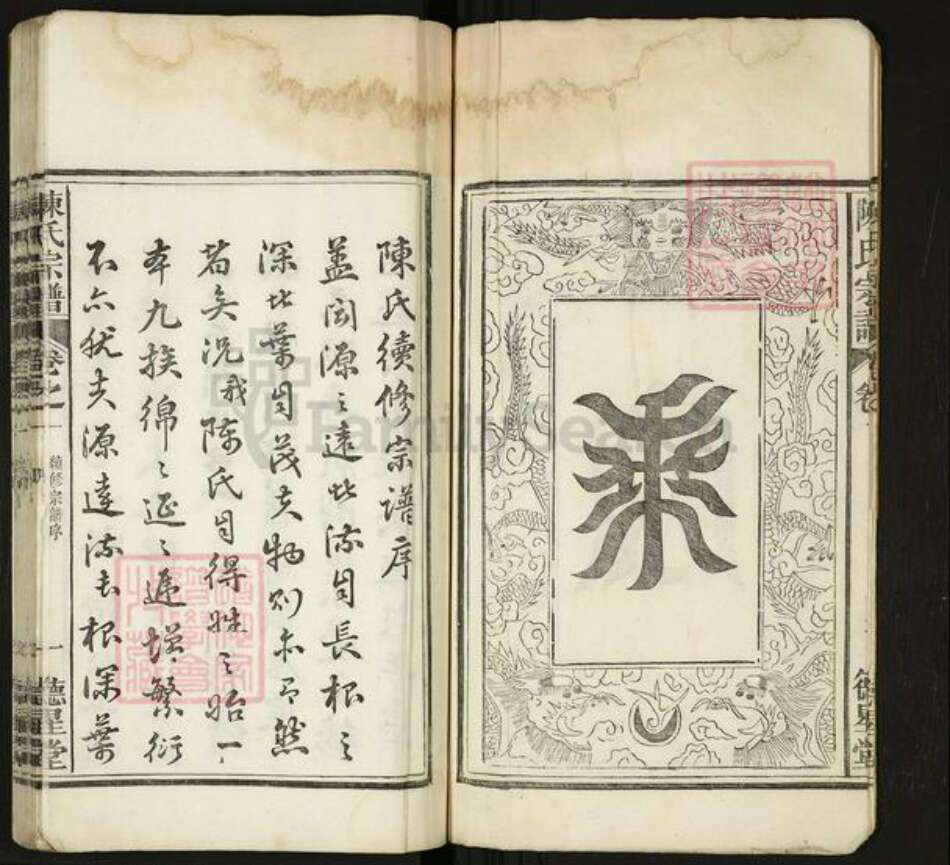 陳氏宗譜
卷
德星堂
陳氏續修宗譜序
盖闻源之遠者流自長根之
深者葉自茂夫物則亦有然
者矣况我陈氏自得姓之始一
本九族綿綿延延遞增繁衍
不亦猶夫源遠流長根深葉
陳氏宗譜
卷之一
續修宗譜序
一
德星堂